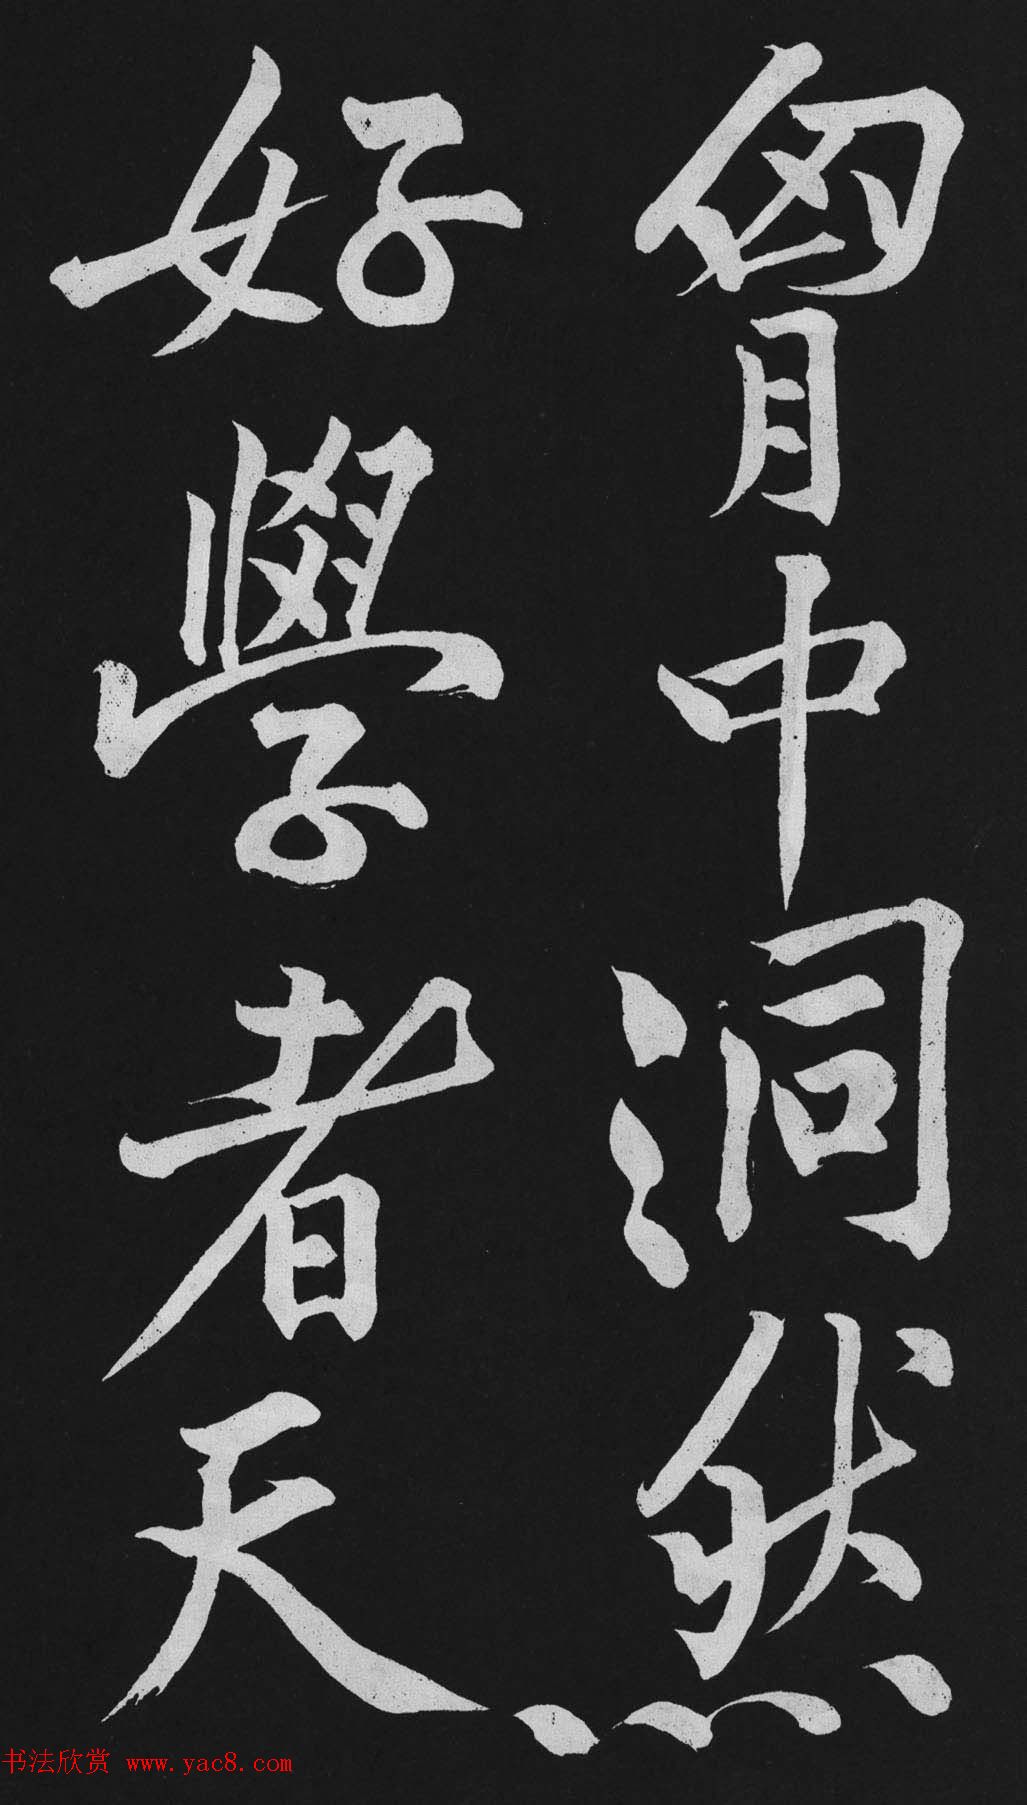 胷中洞然
好學者天
书法欣赏 www.yac8.com